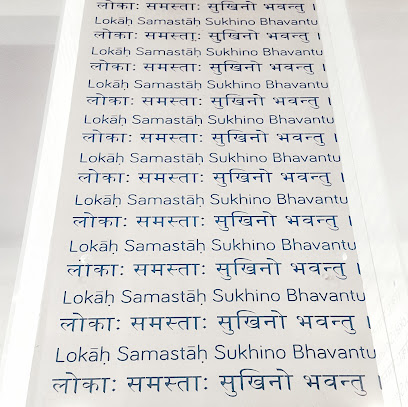 लोकाः समस्ताः सुखिनो भवन्तु ।
Lokāḥ Samastāḥ Sukhino Bhavantu
लोकाः समस्ताः सुखिनो भवन्तु ।
Lokāḥ Samastāḥ Sukhino Bhavantu
लोकाः समस्ताः सुखिनो भवन्तु ।
Lokāḥ Samastāḥ Sukhino Bhavantu
लोकाः समस्ताः सुखिनो भवन्तु ।
Lokāḥ Samastāḥ Sukhino Bhavantu
लोकाः समस्ताः सुखिनो भवन्तु ।
Lokāḥ Samastāḥ Sukhino Bhavantu
लोकाः समस्ताः सुखिनो भवन्तु ।
Lokāḥ Samastāḥ Sukhino Bhavantu
लोकाः समस्ताः सुखिनो भवन्तु ।
Lokāḥ Samastāḥ Sukhino Bhavantu
लोकाः समस्ताः सुखिनो भवन्तु ।
Lokāḥ Samastāḥ Sukhino Bhavantu
लोकाः समस्ताः सुखिनो भवन्तु ।
Lokāḥ Samastāḥ Sukhino Bhavantu
लोकाः समस्ताः सुखिनो भवन्तु ।